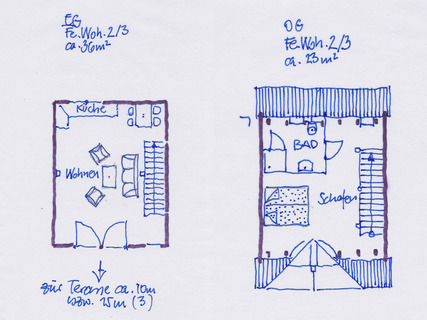 EG
Fe.Woh. 2/3
ca. 36m²
Küche
Wohnen
zur Terasse ca. 10m
bzw. 15m (3)
OG
Fe.Woh. 2/3
ca. 23m²
BAD
Schafen